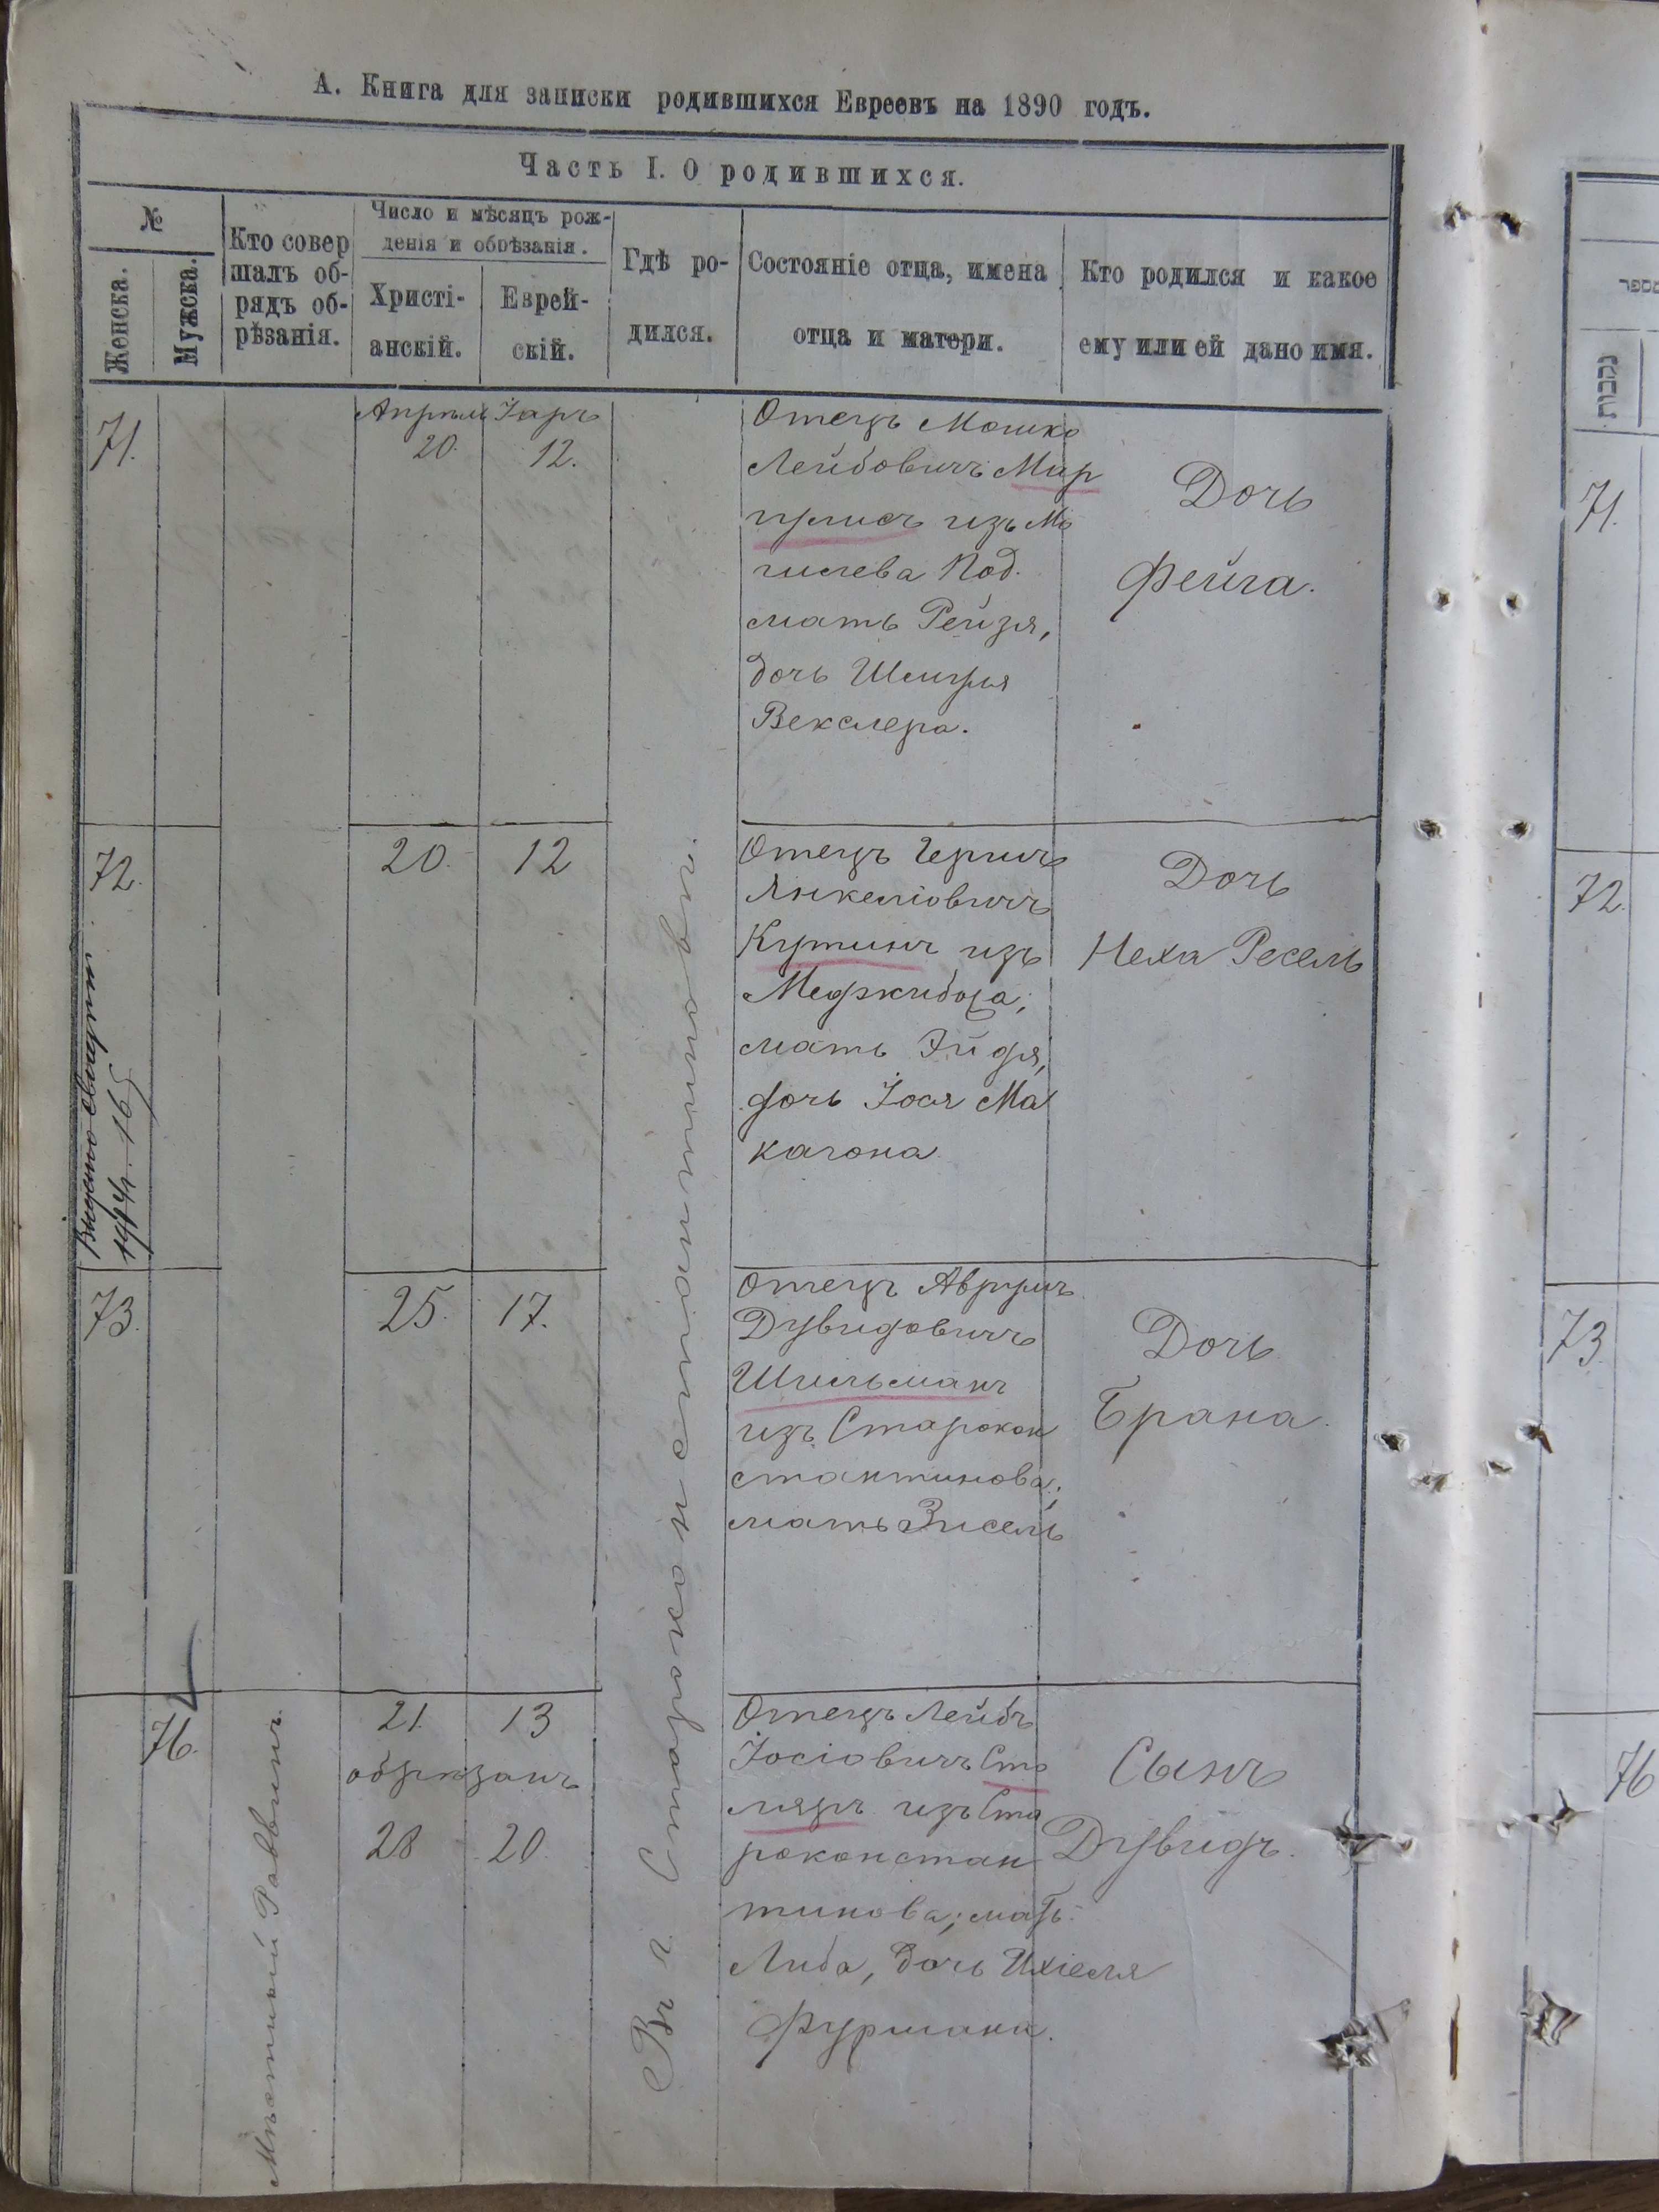 А. Книга для записки родившихся Евреевъ на 1890 годъ.
Часть I. О родившихся.
№
Женска.
Мужска.
Кто совер
шалъ об-
рядъ об-
рѣзанія.
Число и мѣсяцъ рож-
денія и обрѣзанія.
Христі-
анскій.
Еврей-
скій.
Гдѣ ро-
дился.
Состояніе отца, имена
отца и матери.
Кто родился и какое
ему или ей дано имя.
71.
Апрѣль Іаръ
20. 12.
Отецъ Мошко
Лейбовичъ Мир
изъ Мо
гилева Под.
мать Рейзя,
дочь Шмуля
Векслера.
Дочь
Фейга.
72.
Выдано свидѣт.
165
20. 12
Отецъ Гершъ
Янкеліовичъ
Кутинъ изъ
Меджибожа;
мать Эйдя,
дочь Іося Ма
кагона
Дочь
Неха Ресель
73.
25. 17.
Отецъ Аврумъ
Дувидовичъ
Шильманъ
изъ Старокон
стантинова;
мать Зисель
Дочь
Брана.
76.
Мѣстный Раввинъ.
21. 13
обрѣзанъ
28 20.
Отецъ Лейбъ
Іосіовичъ Сто
ляръ изъ Ста
роконстан
тинова; мать
Либа, дочь Ихіеля
Фурмана.
Сынъ
Дувидъ.
Въ г. Староконстантиновѣ.
נקבות
71.
72.
73.
76